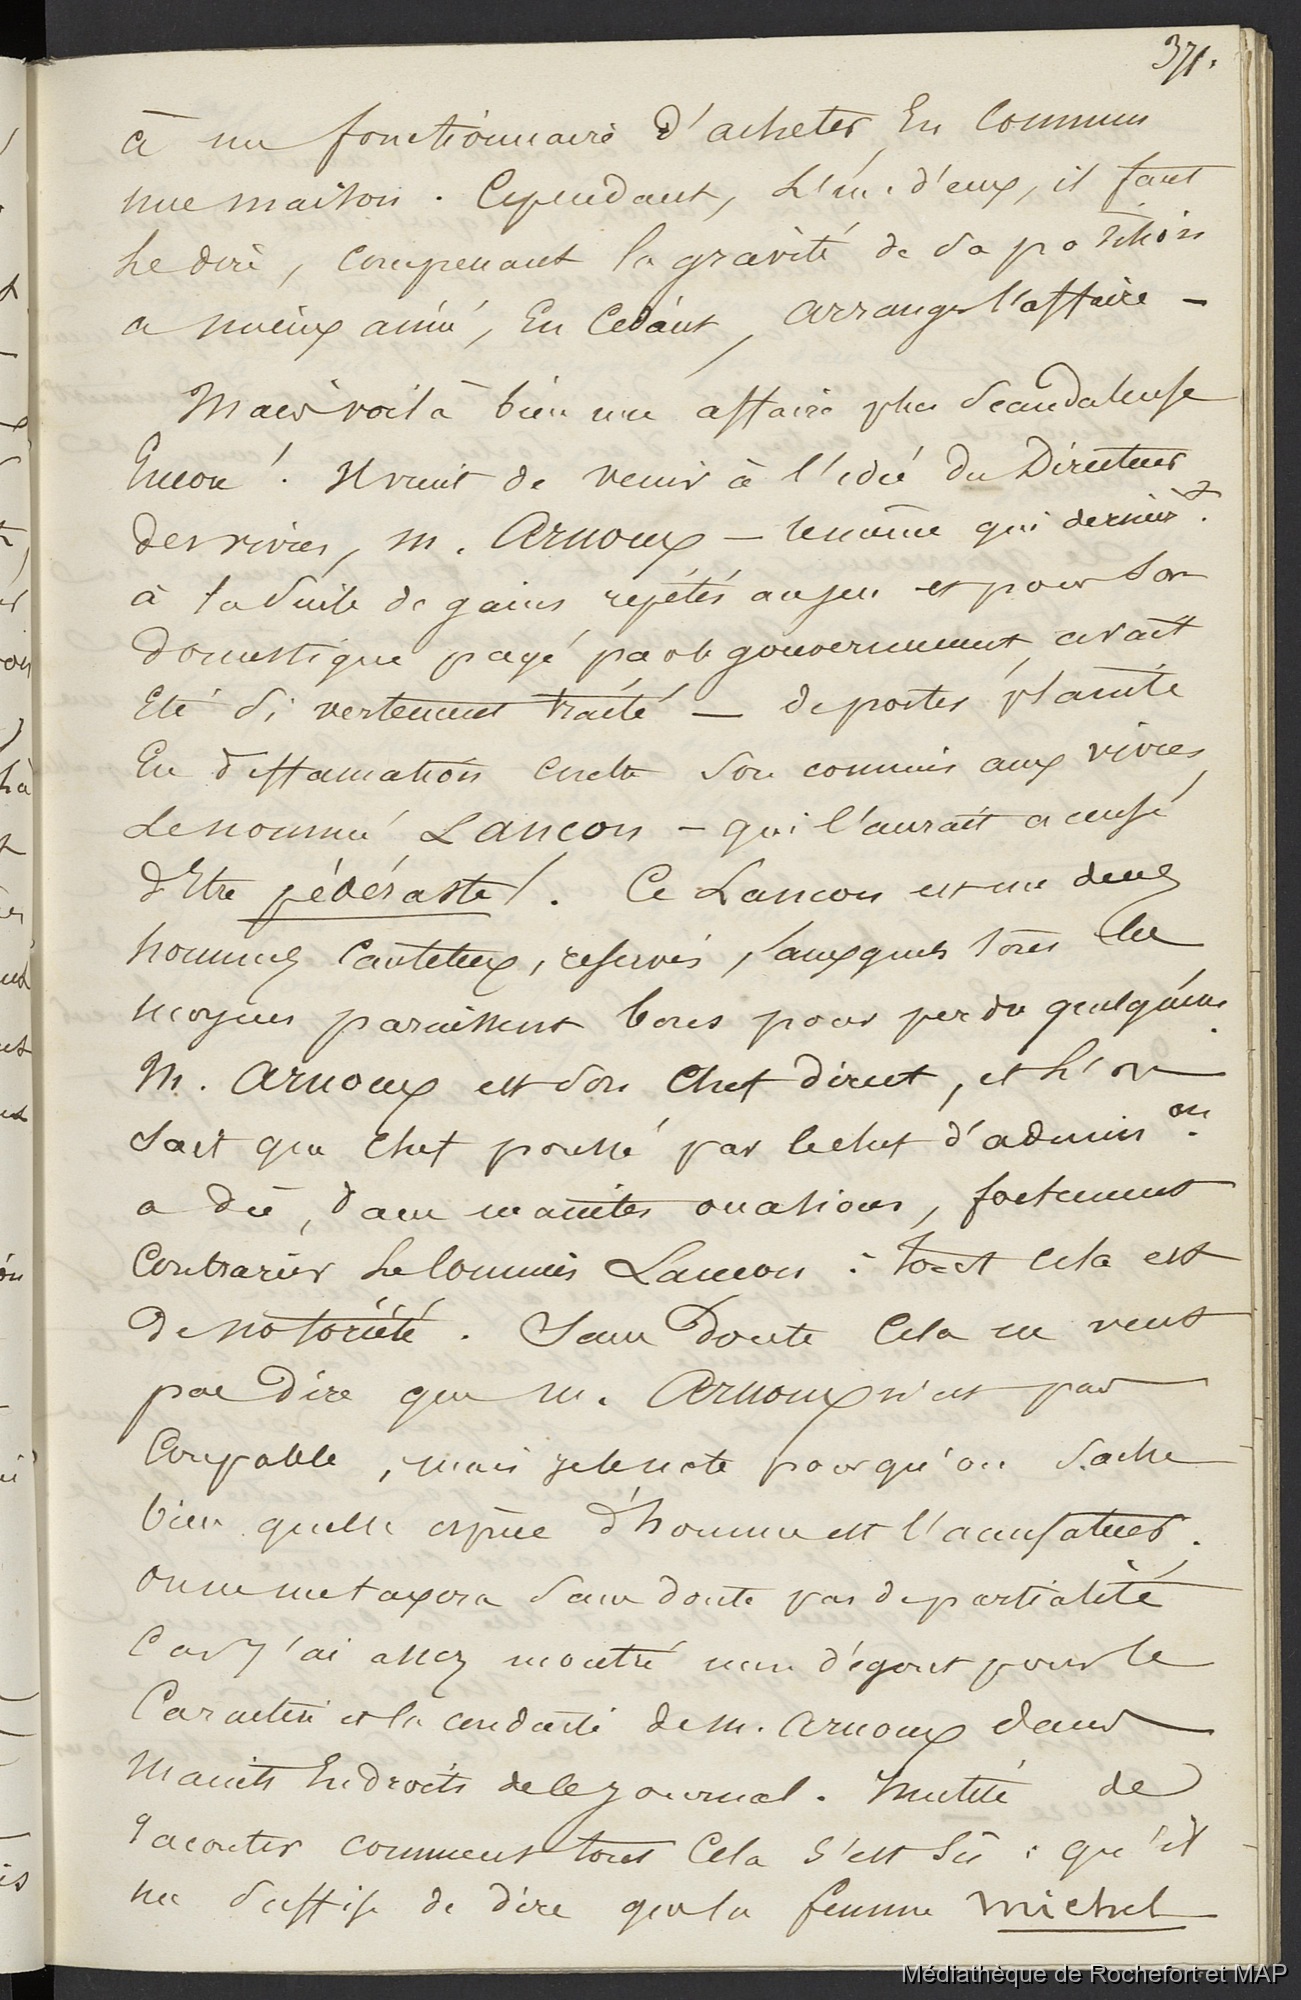 371.
à un fonctionnaire d'acheter en commun
une maison. Cependant, l'un d'eux, il faut
le dire, comprenant la gravité de sa position
a mieux aimé, en cédant, arranger l'affaire —
Mais voilà bien une affaire plus scandaleuse
encore ! Il vient de venir à l'idée du Directeur
des vivres, M. Arnoux — le même qui dernièrt.
à la suite de gains répétés au jeu et pour son
domestique payé par le gouvernement, avait
été si vertement traité — de porter plainte
en diffamation contre son commis aux vivres,
le nommé Lancon — qui l'aurait accusé
d'être pédéraste !. Ce Lancon est un de ces
hommes cauteleux, réservés, auxquels tous les
moyens paraissent bons pour perdre quelqu'un.
M. Arnoux est son chef direct, et l'on
sait que chef poussé par le chef d'adminon.
a dû, dans maintes occasions, fortement
contrarier le commis Lancon : tout cela est
de notoriété. Sans doute cela ne veut
pas dire que M. Arnoux n'est pas
coupable, mais je le note pour qu'on sache
bien quelle espèce d'homme est l'accusateur.
On ne me taxera sans doute pas de partialité
car j'ai assez montré mon dégout pour le
caractère et la conduite de M. Arnoux dans
maints endroits de ce journal. Inutile de
raconter comment tout cela s'est su : qu'il
me suffise de dire que la femme Michel
Médiathèque de Rochefort et MAP